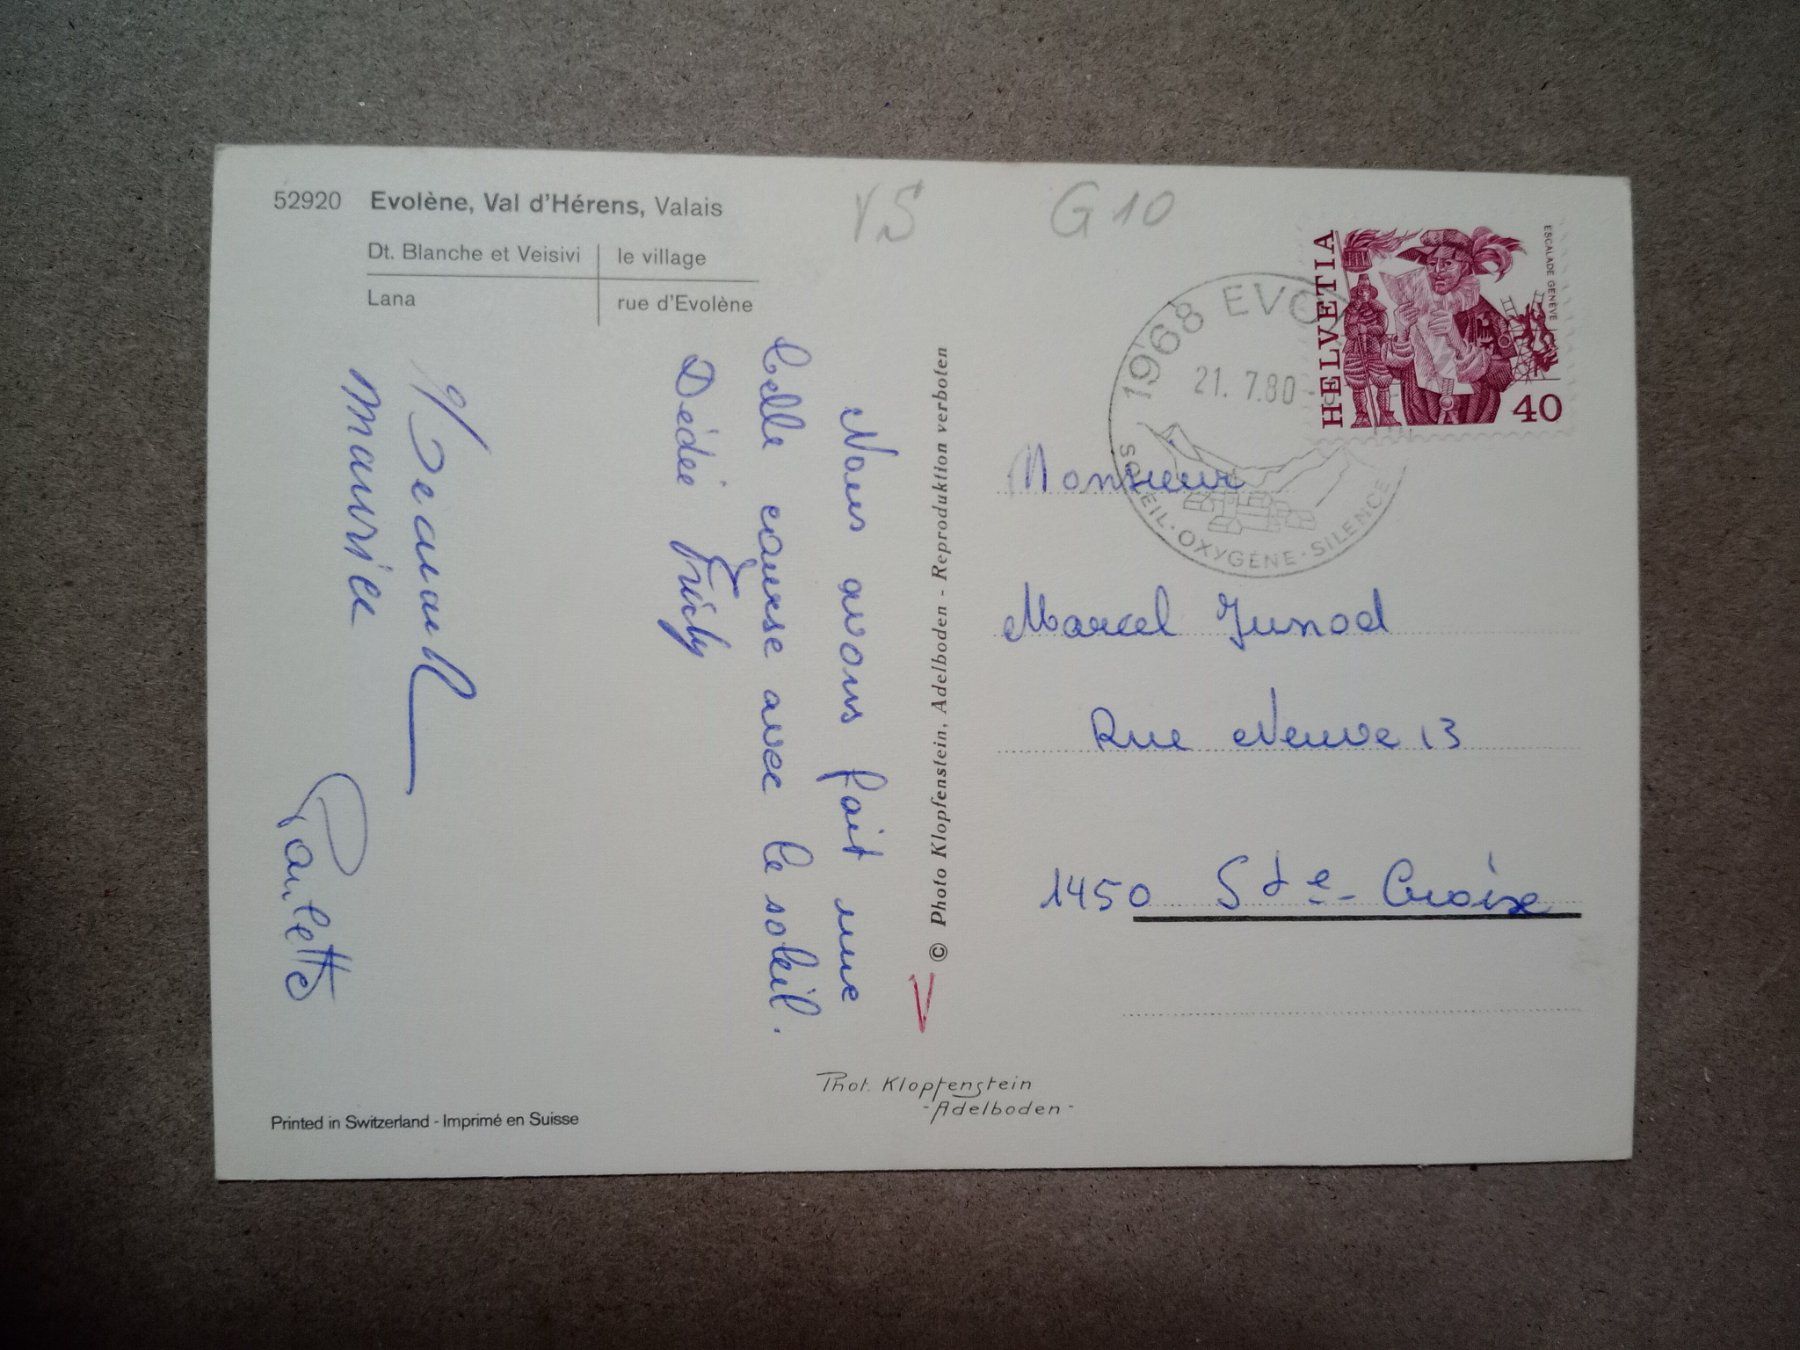 52920 Evolène, Val d'Hérens, Valais
Dt. Blanche et Veisivi | le village
Lana | rue d'Evolène
VS G10
HELVETIA
ESCALADE GENÈVE
40
1968 EVO
21. 7.80
SOLEIL · OXYGÈNE · SILENCE
Nous avons fait une
belle course avec le soleil.
Dédée
Maurice
Paulette
© Photo Klopfenstein, Adelboden - Reproduktion verboten
V
Monsieur
Marcel Junod
Rue Neuve 13
1450 Ste-Croix
Phot. Klopfenstein
- Adelboden -
Printed in Switzerland - Imprimé en Suisse